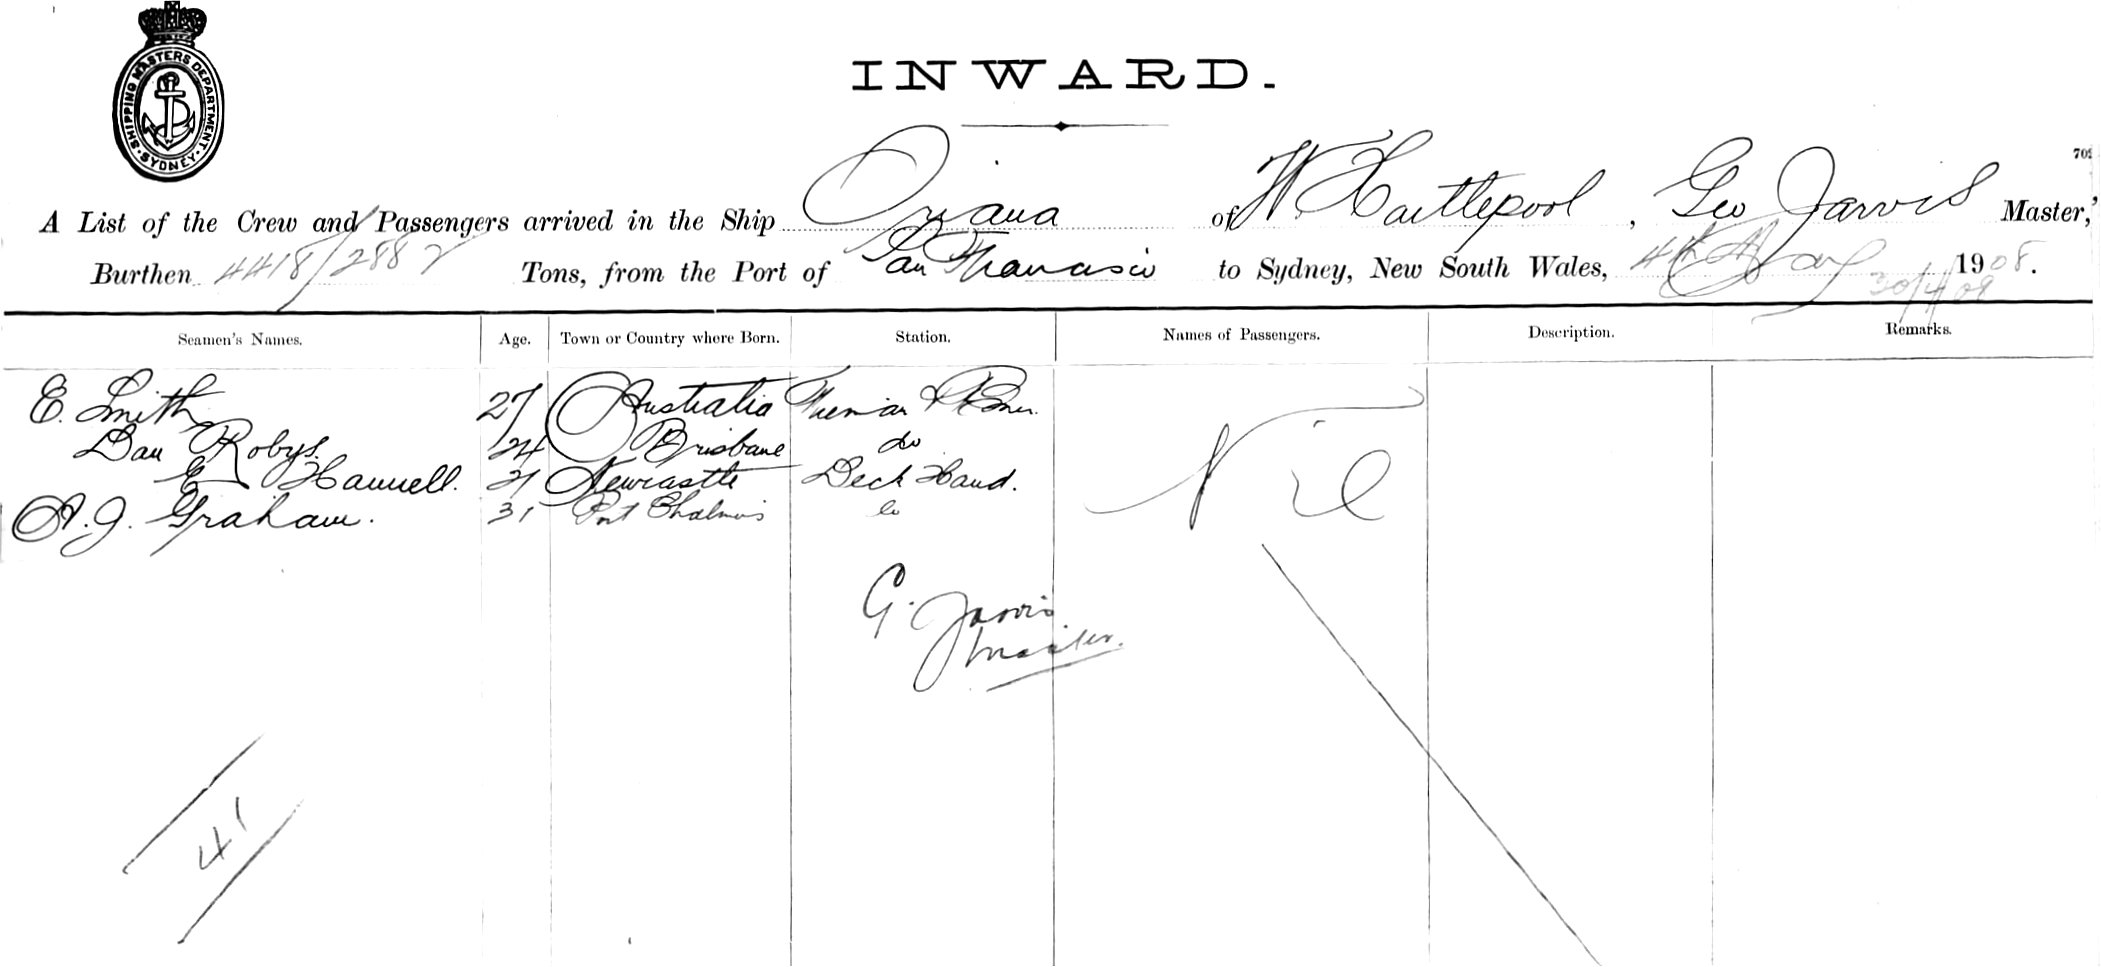 SHIPPING MASTERS DEPARTMENT · SYDNEY ·
INWARD.
702
A List of the Crew and Passengers arrived in the Ship Oriana of W. Hartlepool, Geo Jarvis Master,
Burthen 4418/2882 Tons, from the Port of San Francisco to Sydney, New South Wales, 4th May 1908.
30/4/08
Seamen's Names. Age. Town or Country where Born. Station. Names of Passengers. Description. Remarks.
E. Smith 27 Australia Fireman & Trimmer. Nil
Dan Robys. 24 Brisbane do
E Hannell. 21 Newcastle Deck Hand.
A. J. Graham. 31 Port Chalmers do
G. Jarvis
Master.
41